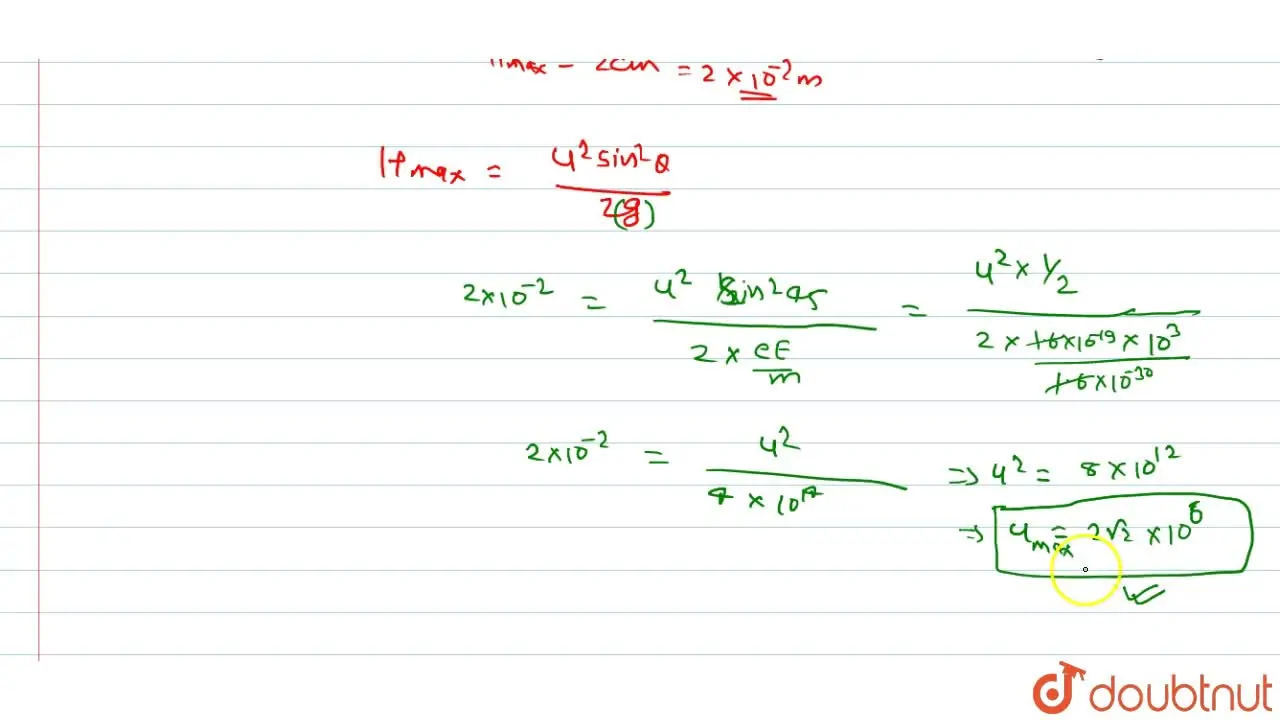 Hmax = 2cm = 2 × 10⁻² m
Hmax = u² sin² θ / 2(g)
2×10⁻² = u² sin² 45 / 2 × eE/m = u² × 1/2 / 2 × 1.6×10⁻¹⁹ × 10³ / 1.6×10⁻³⁰
2×10⁻² = u² / 4 × 10¹⁴ ⇒ u² = 8 × 10¹²
⇒ umax = 2√2 × 10⁶
doubtnut